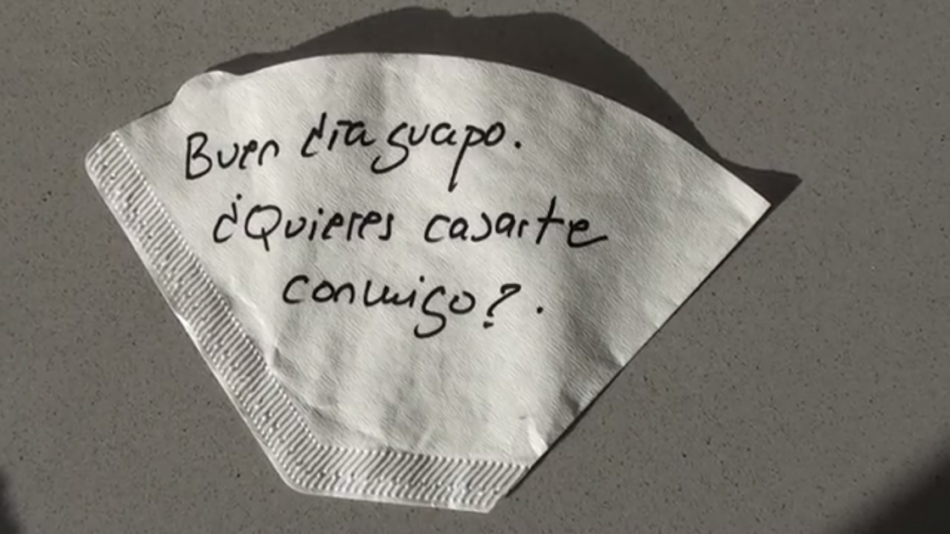 Buen día guapo.
¿Quieres casarte
conmigo?.